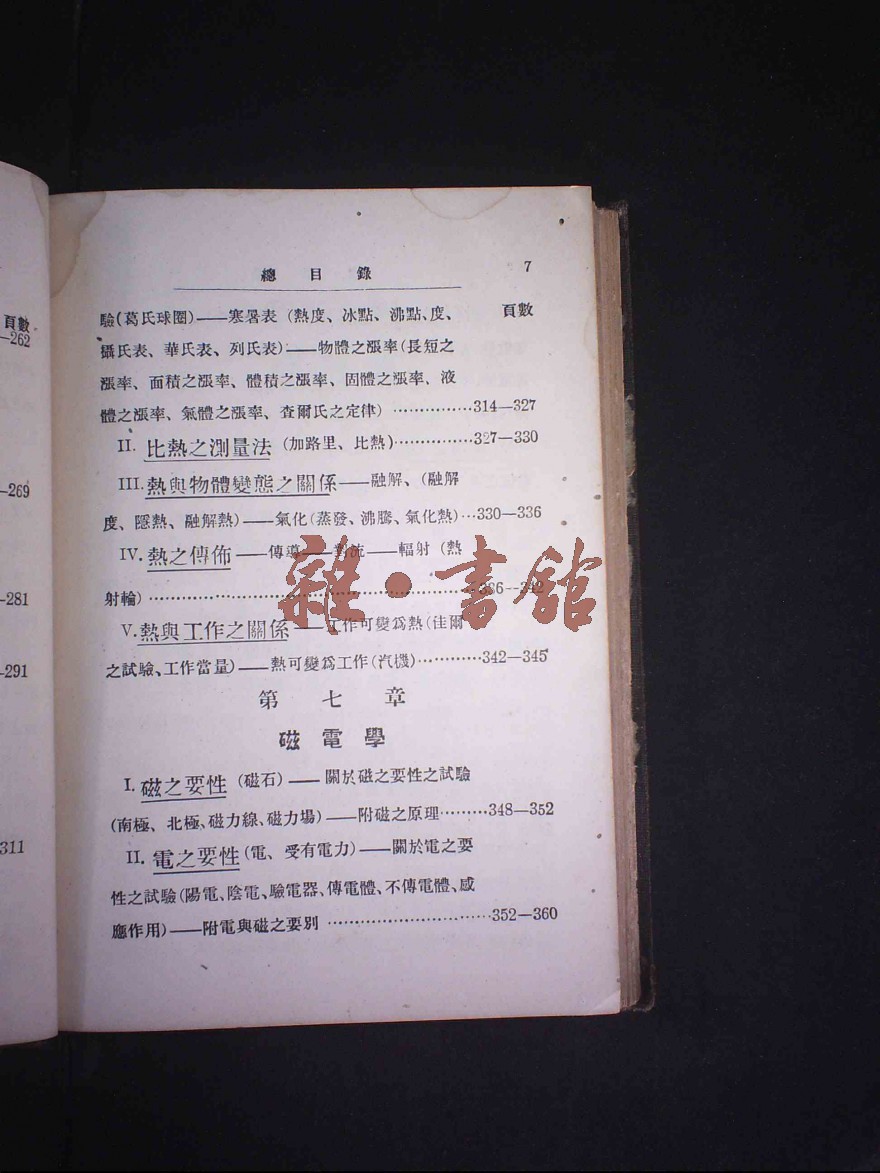 頁數
—262
—269
—281
—291
311
總目錄 7
驗(葛氏球圈)——寒暑表(熱度、冰點、沸點、度、 頁數
攝氏表、華氏表、列氏表)——物體之漲率(長短之
漲率、面積之漲率、體積之漲率、固體之漲率、液
體之漲率、氣體之漲率、查爾氏之定律)……………314—327
II. 比熱之測量法(加路里、比熱)……………327—330
III. 熱與物體變態之關係——融解、(融解
度、隱熱、融解熱)——氣化(蒸發、沸騰、氣化熱)…330—336
IV. 熱之傳佈——傳導——對流——輻射(熱
射輪)……………………………………………336—342
V. 熱與工作之關係——工作可變爲熱(佳爾
之試驗、工作當量)——熱可變爲工作(汽機)…………342—345
第七章
磁電學
I. 磁之要性(磁石)——關於磁之要性之試驗
(南極、北極、磁力線、磁力場)——附磁之原理………348—352
II. 電之要性(電、受有電力)——關於電之要
性之試驗(陽電、陰電、驗電器、傳電體、不傳電體、感
應作用)——附電與磁之要別……………………………352—360
雜·書館